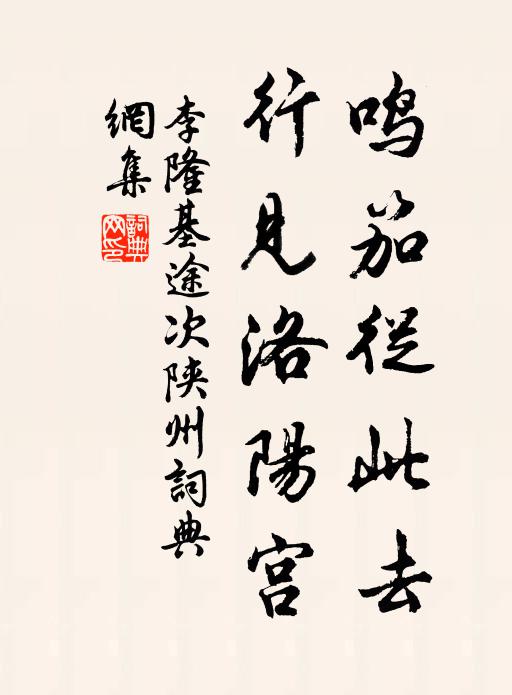 鸣笳從此去
行見洛陽宫
李隆基途次陕州詞典
網集
詞典
网印